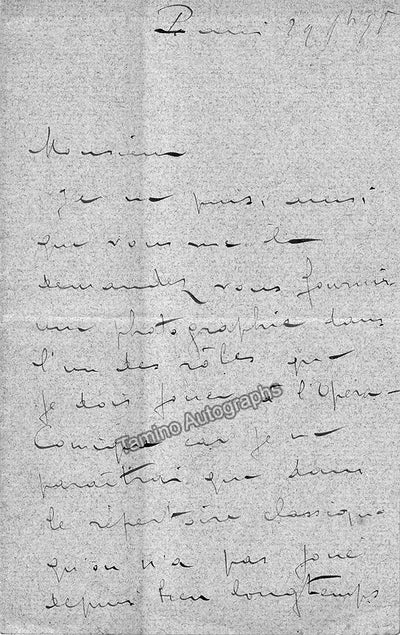 Paris 29 1bre 95
Monsieur
Je ne puis, ainsi
que vous me le
demandez, vous fournir
une photographie dans
l'un des rôles que
je dois jouer à l'Opéra-
Comique car je ne
paraîtrai que dans
le répertoire classique
qu'on n'a pas joué
depuis bien longtemps
Tamino Autographs